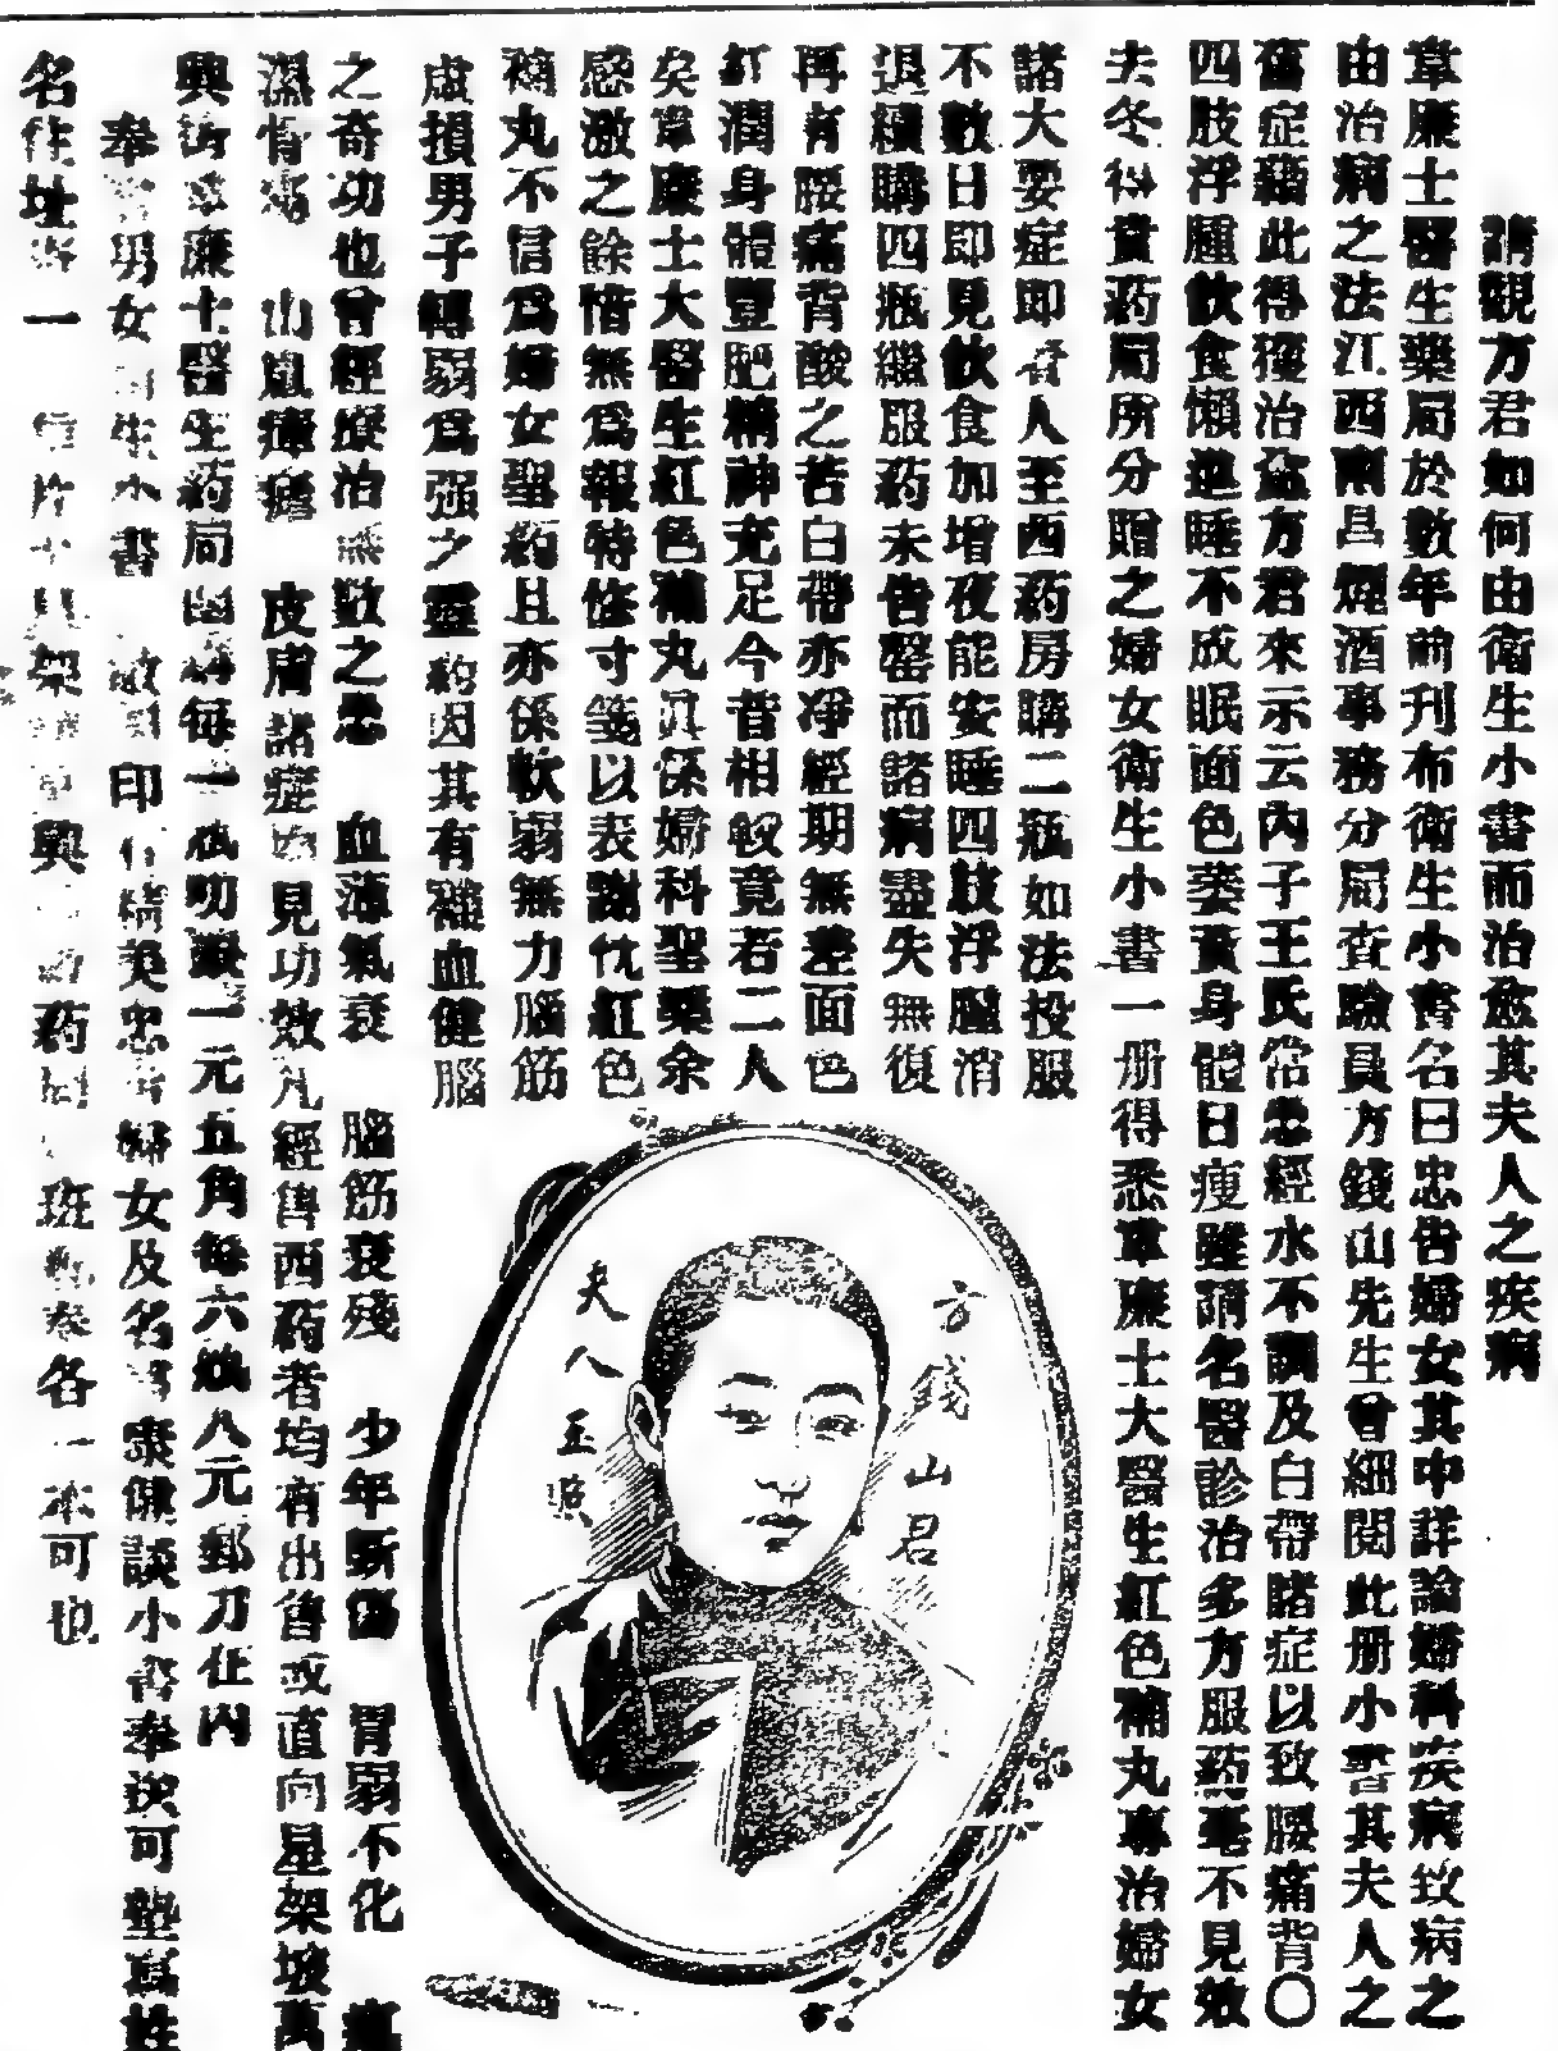 請觀方君如何由衛生小書而治愈其夫人之疾病
韋廉士醫生藥局於數年前刊布衛生小書名曰忠告婦女其中詳論婦科疾病致病之
由治病之法江西南昌煙酒事務分局查驗員方錢山先生曾細閱此册小書其夫人之
舊症藉此得獲治愈方君來示云內子王氏常患經水不調及白帶諸症以致腰痛背〇
四肢浮腫飲食懶進睡不成眠面色萎黃身體日瘦雖請名醫診治多方服药毫不見效
去冬得貴药局所分贈之婦女衛生小書一册得悉韋廉士大醫生紅色補丸專治婦女
諸大要症即 人至西药房購二瓶如法投服
不數日即見飲食加增夜能安睡四肢浮腫消
退續購四瓶繼服药未告罄而諸病盡失無復
再有腰痛背酸之苦白帶亦凈經期無差面色
紅潤身體豐肥精神充足今昔相較竟若二人
矣韋廉士大醫生紅色補丸眞係婦科聖藥余
感激之餘惜無爲報特修寸箋以表謝忱紅色
補丸不信爲婦女聖药且亦係軟弱無力腦筋
虛損男子轉弱爲强之靈药因其有補血健腦
之奇功也曾經療治無數之患 血薄氣衰 腦筋衰殘 少年斲傷 胃弱不化 瘋
濕骨痛 山嵐瘴瘧 皮膚諸症 見功效凡經售西药者均有出售或直向星架坡萬
興街韋廉士醫生药局函購每一瓶叻銀一元五角每六瓶八元郵力在內
奉 男女 生小書 印 精美忠告婦女及名爲康健談小書奉送可塾寫姓
名住址 一 片 架 興 药局 班 各一本可也
方錢山君
夫人玉照